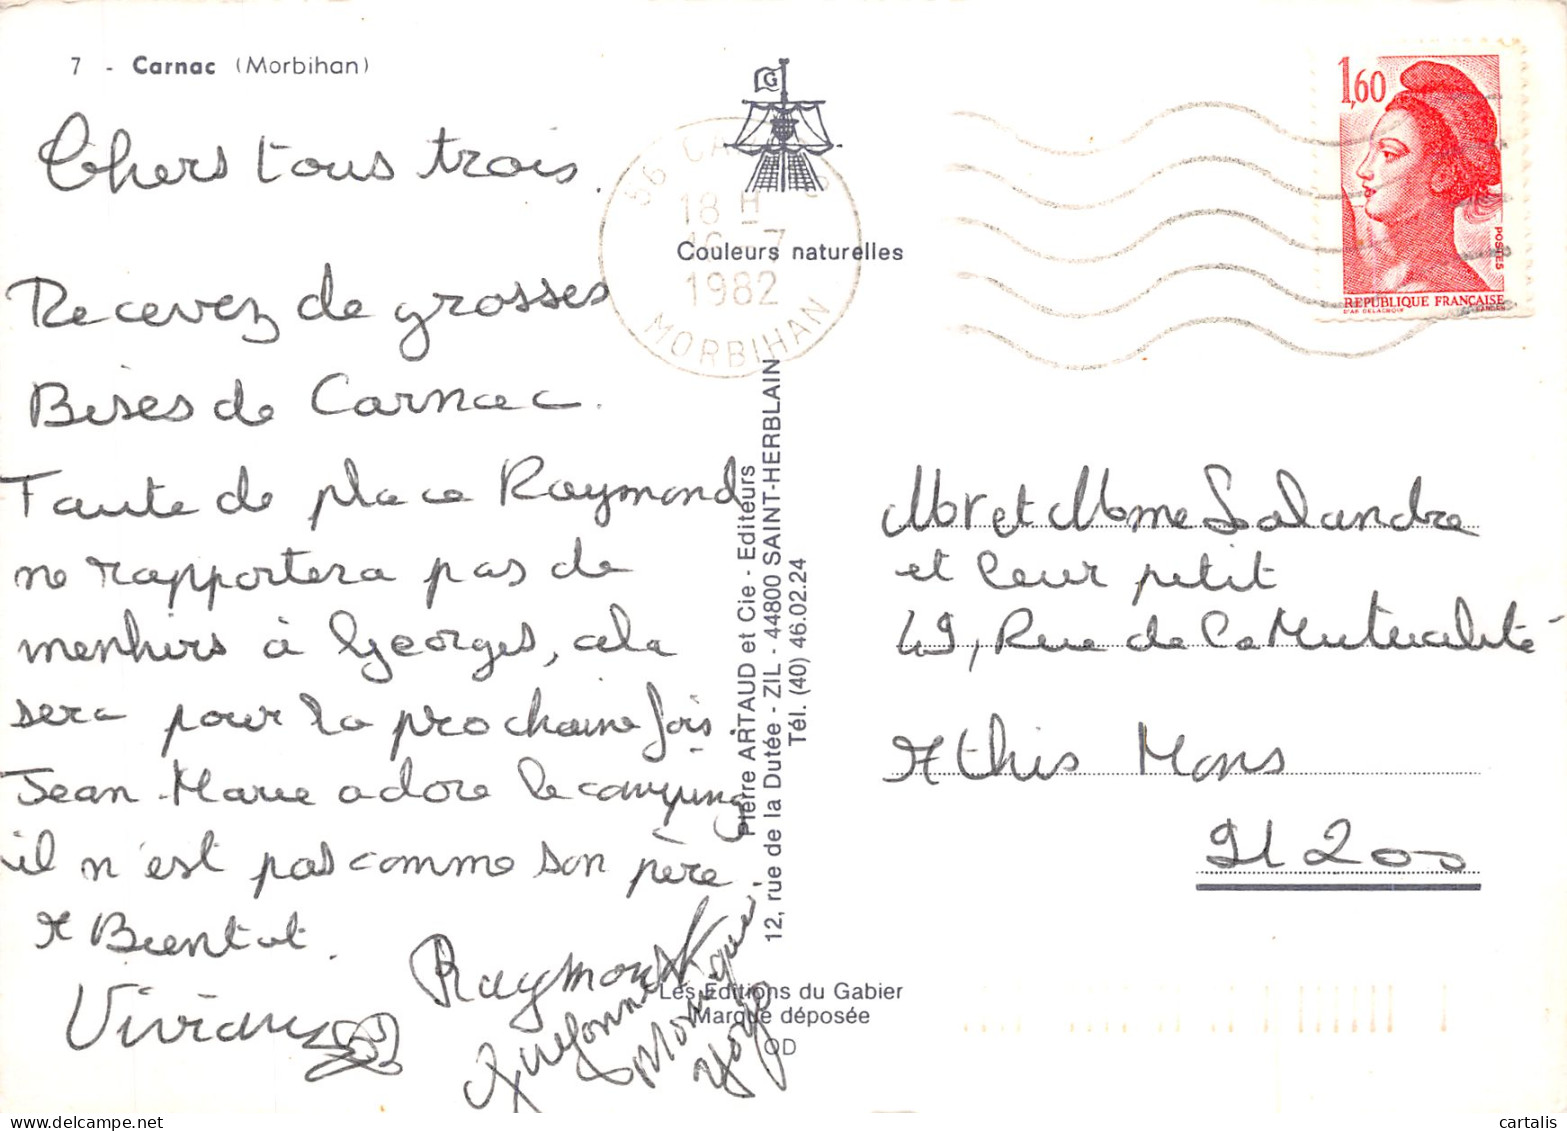 7 - Carnac (Morbihan)
Chers tous trois.
Recevez de grosses
Bises de Carnac.
Faute de place Raymond
ne rapportera pas de
menhirs à Georges, cela
sera pour la prochaine fois.
Jean-Marie adore le camping
il n'est pas comme son père.
A Bientot.
Viviane
Raymond
Yvonne
Monique
Yoyo
G
56 CARNAC
18 H
16-7
1982
MORBIHAN
Couleurs naturelles
Pierre ARTAUD et Cie - Editeurs
12, rue de la Dutée - ZIL - 44800 SAINT-HERBLAIN
Tél. (40) 46.02.24
Les Editions du Gabier
Marque déposée
OD
1,60
POSTES
REPUBLIQUE FRANÇAISE
D'AP. DELACROIX GANDON
Mr et Mme Lalandre
et leur petit
49, Rue de la Mutualité
Athis Mons
91200
cartalis